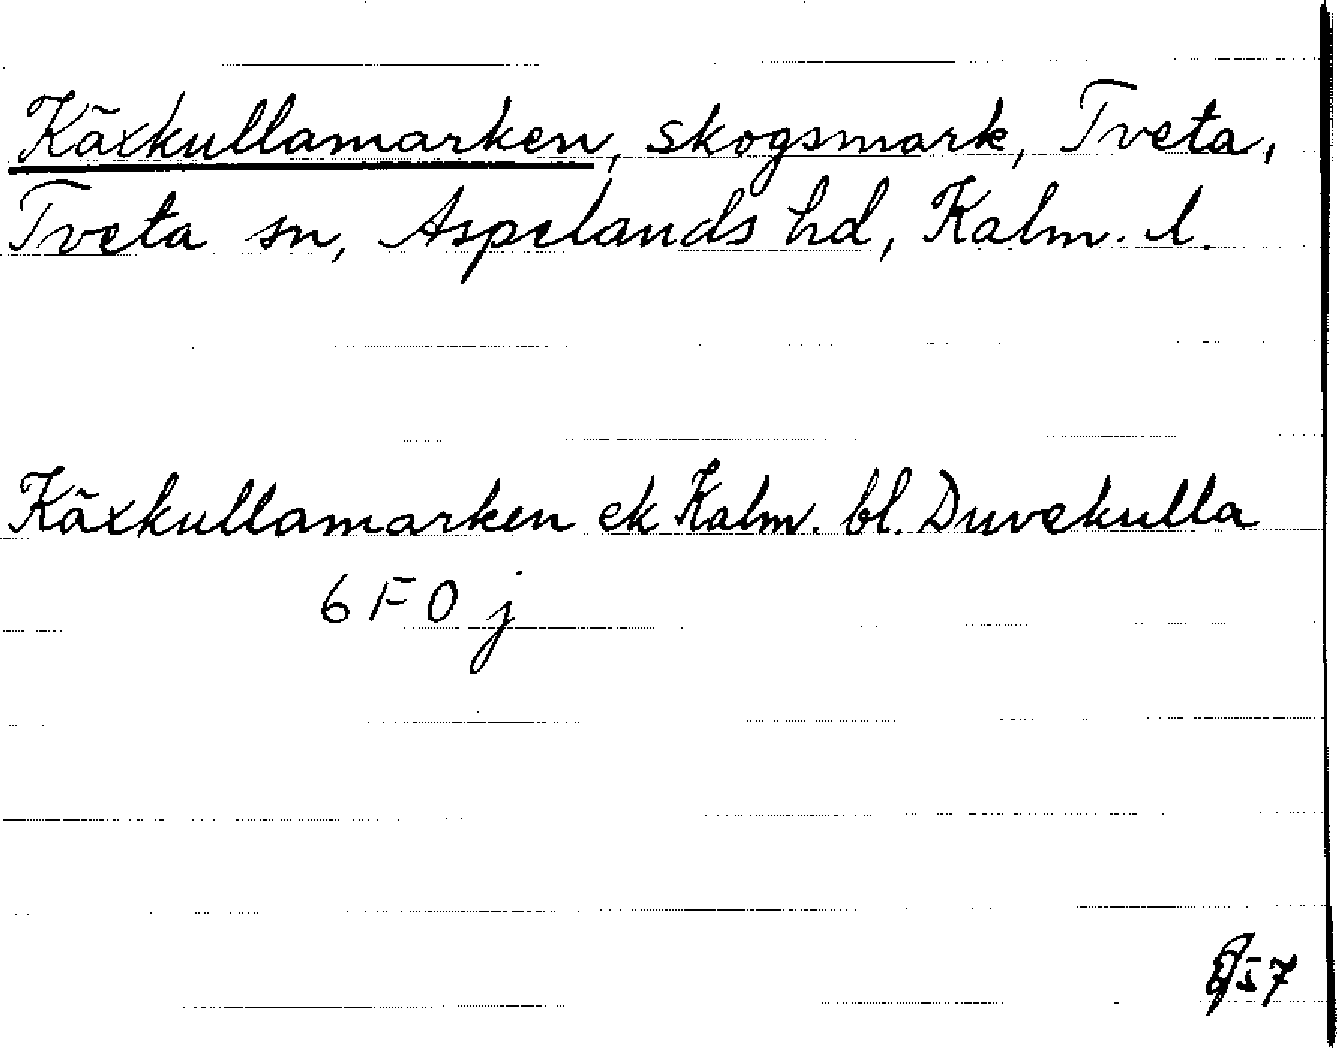 Käxkullamarken, skogsmark, Tveta,
Tveta sn, Aspelands hd, Kalm. l.
Käxkullamarken ek Kalm. bl. Duvekulla
6 F 0 j
57